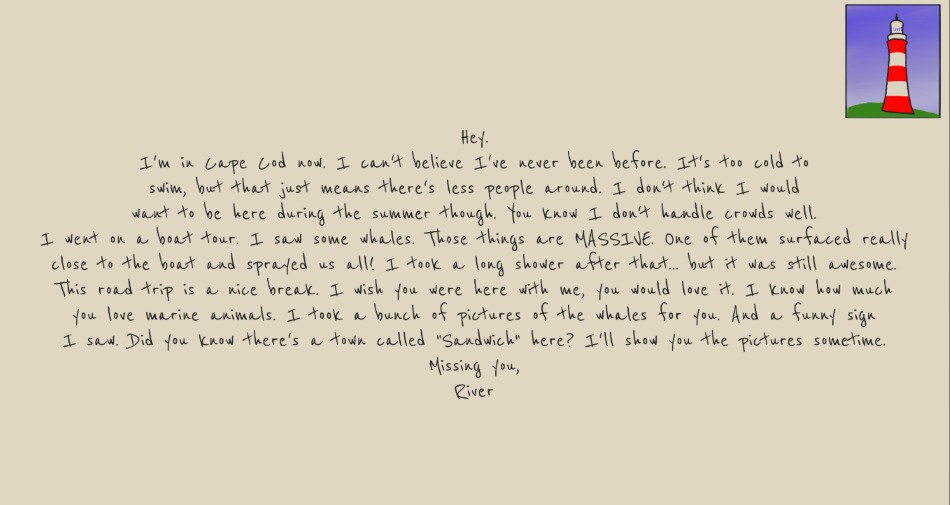 Hey.
I'm in Cape Cod now. I can't believe I've never been before. It's too cold to
swim, but that just means there's less people around. I don't think I would
want to be here during the summer though. You know I don't handle crowds well.
I went on a boat tour. I saw some whales. Those things are MASSIVE. One of them surfaced really
close to the boat and sprayed us all! I took a long shower after that... but it was still awesome.
This road trip is a nice break. I wish you were here with me, you would love it. I know how much
you love marine animals. I took a bunch of pictures of the whales for you. And a funny sign
I saw. Did you know there's a town called "Sandwich" here? I'll show you the pictures sometime.
Missing you,
River